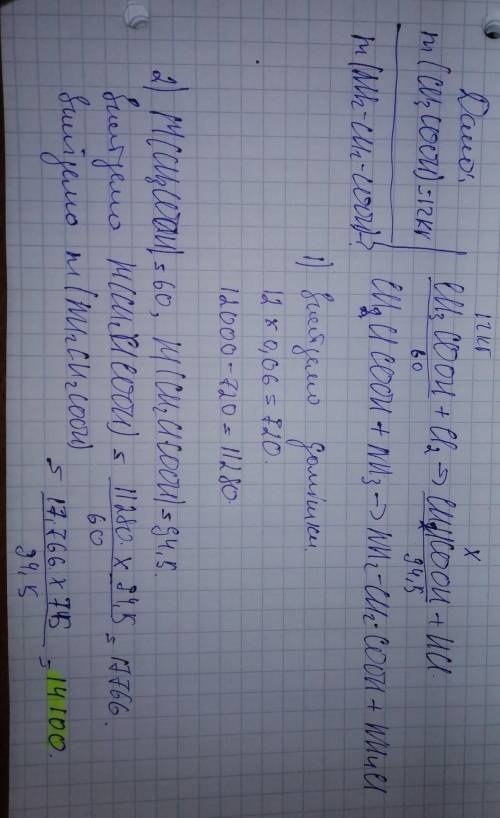 Дано:
m(CH3COOH)=12кг
m(NH2-CH2-COOH)-?
12кг x
CH3COOH + Cl2 → CH2ClCOOH + HCl
60 94,5
CH2ClCOOH + NH3 → NH2-CH2-COOH + NH4Cl
1) домішки.
12 × 0,06 = 720.
12000 - 720 = 11280.
2) M(CH3COOH)=60, M(CH2ClCOOH)=94,5.
M(CH2ClCOOH) = 11280 × 94,5 / 60 = 17766.
m(NH2CH2COOH) = 17,766 × 75 / 94,5 = 14100.